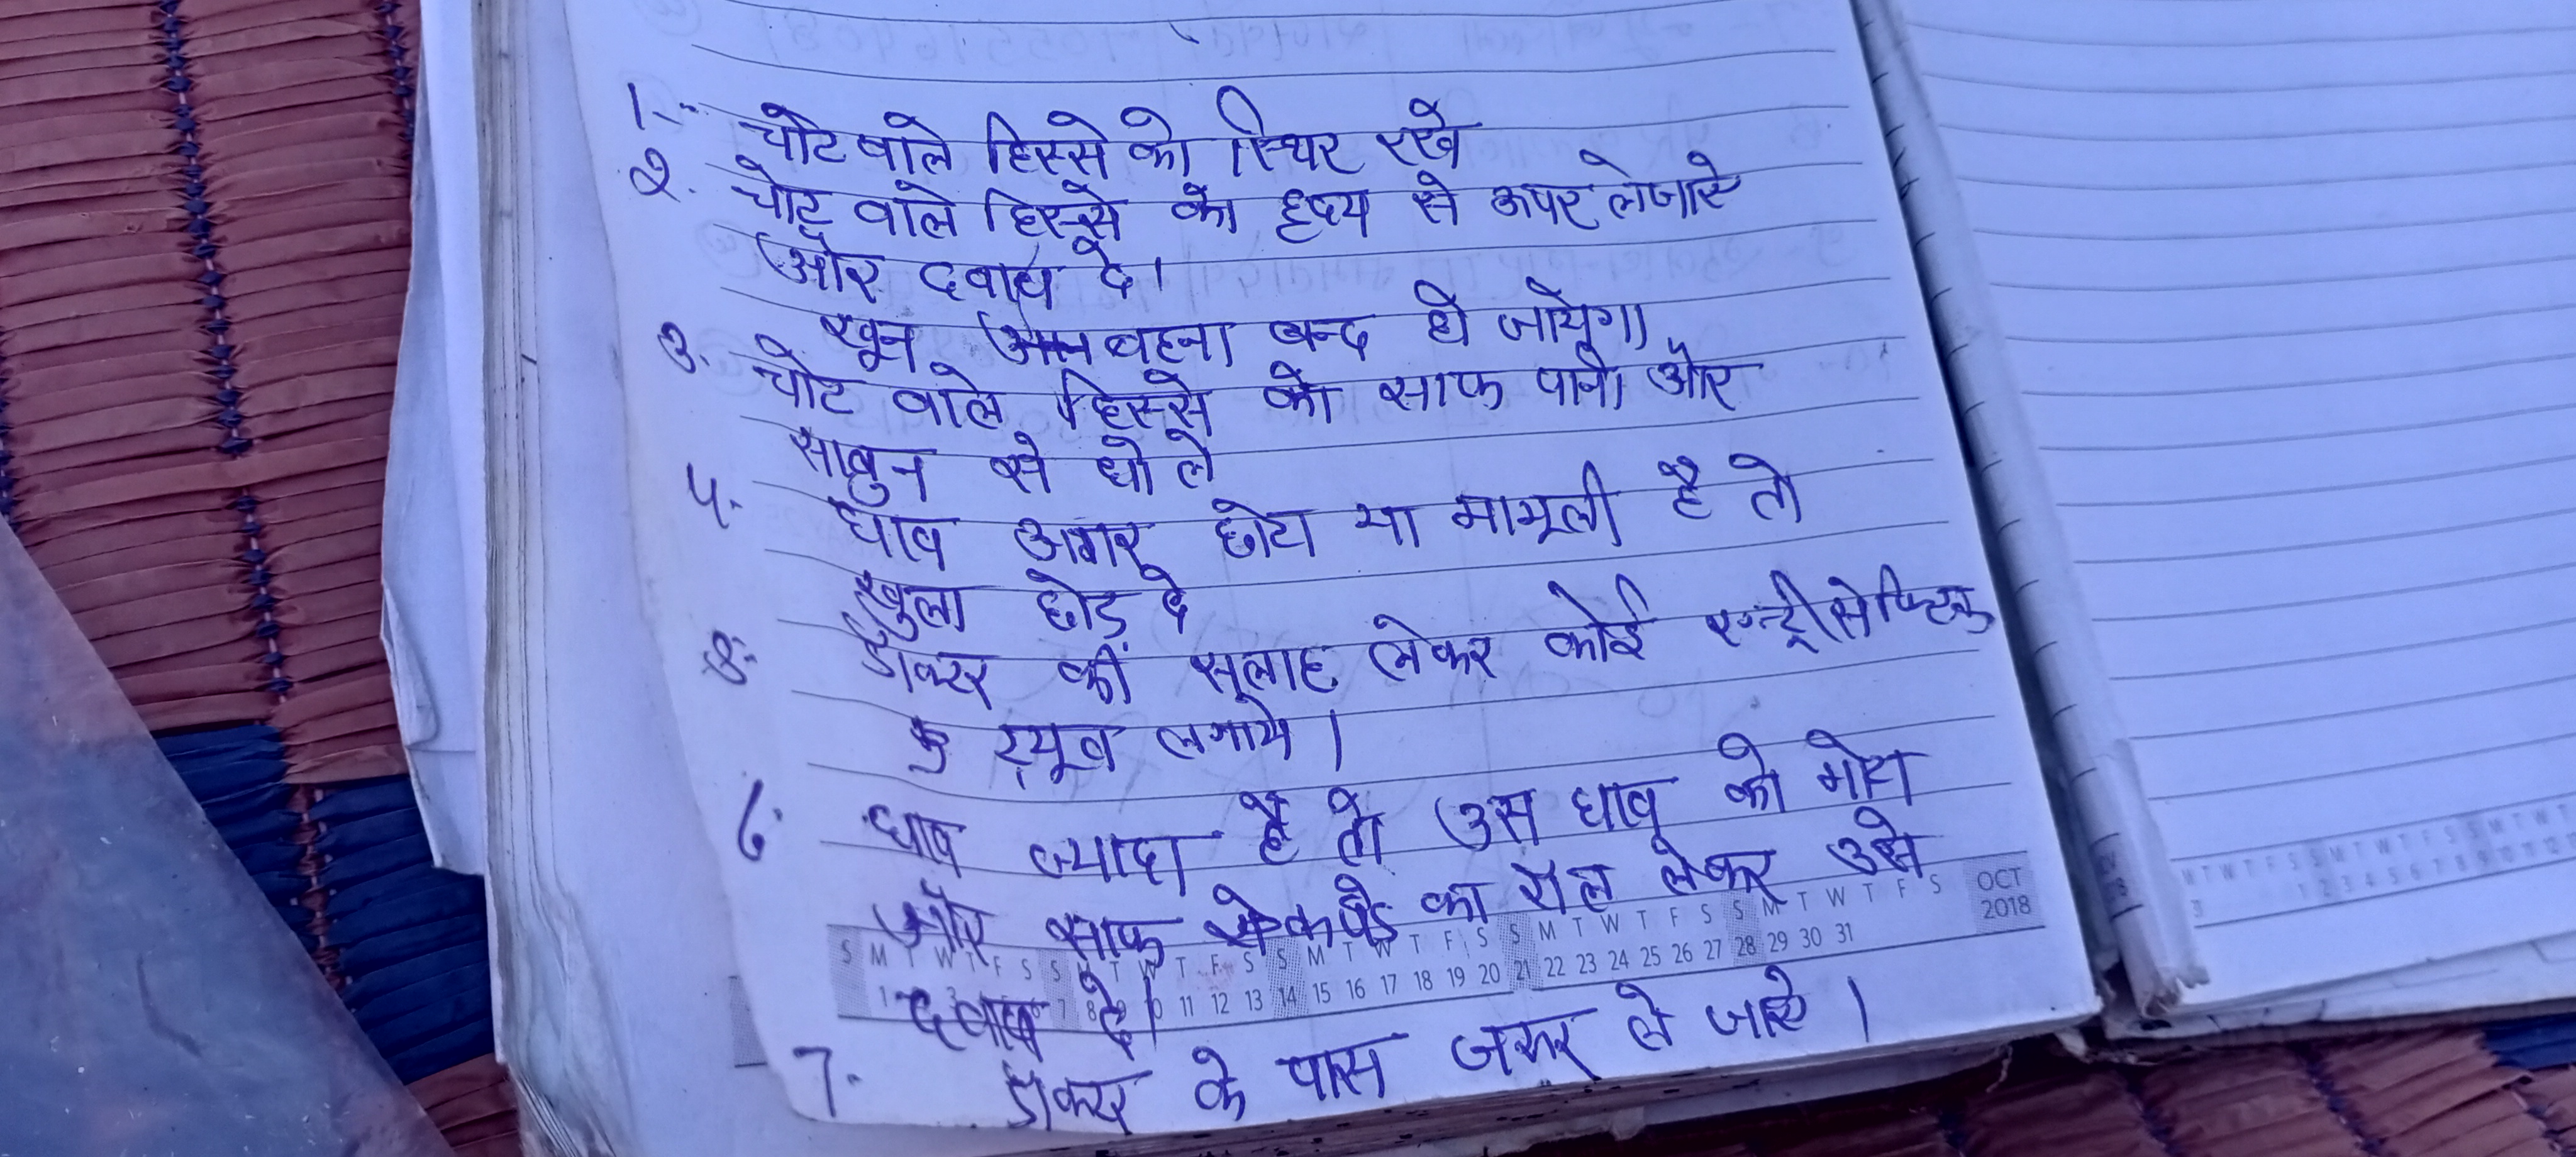 1-- चोट वाले हिस्से को स्थिर रखे
2. चोट वाले हिस्से को हृदय से ऊपर लेजाऐ
और दवाव दे।
खून बहना बन्द हो जायेगा
3. चोट वाले हिस्से को साफ पानी और
साबुन से धो ले
4. घाव अगर छोटा या मामूली है तो
खुला छोड़ दे
5- डॉक्टर की सलाह लेकर कोई एन्टीसेप्टिक
ट्यूव लगाये।
6. घाव ज्यादा है तो उस घाव को मोटा
और साफ कपड़े का रोल लेकर उसे
S M T W T F S S M T W T F S S M T W T F S S M T W T F S S M T W T F S OCT 2018
1 7 8 11 12 13 14 15 16 17 18 19 20 21 22 23 24 25 26 27 28 29 30 31
दवाब दे।
7. डॉक्टर के पास जरूर ले जाऐ।